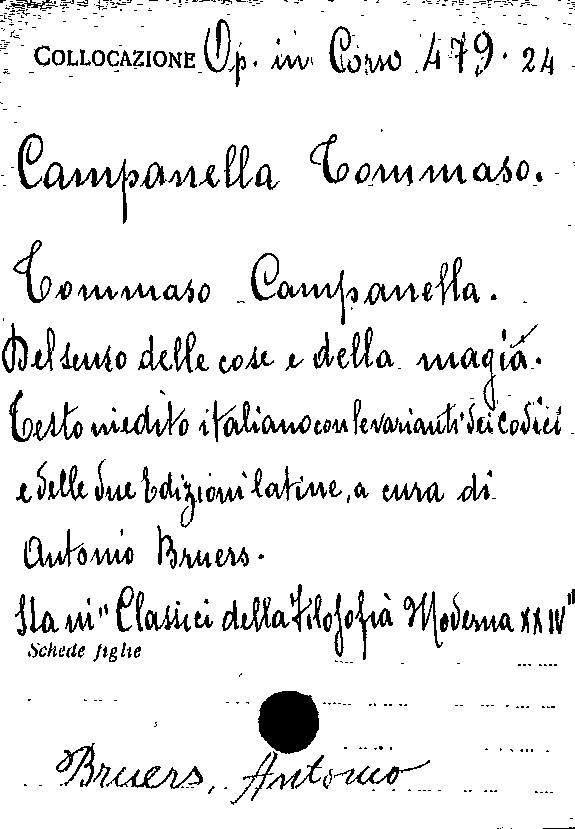 COLLOCAZIONE Op. in Corso 479. 24
Campanella Tommaso.
Tommaso Campanella.
Del senso delle cose e della magia.
Testo inedito italiano con le varianti dei Codici
e delle due Edizioni latine, a cura di
Antonio Bruers.
Sta in "Classici della Filosofia Moderna XXIV"
Schede figlie
Bruers, Antonio